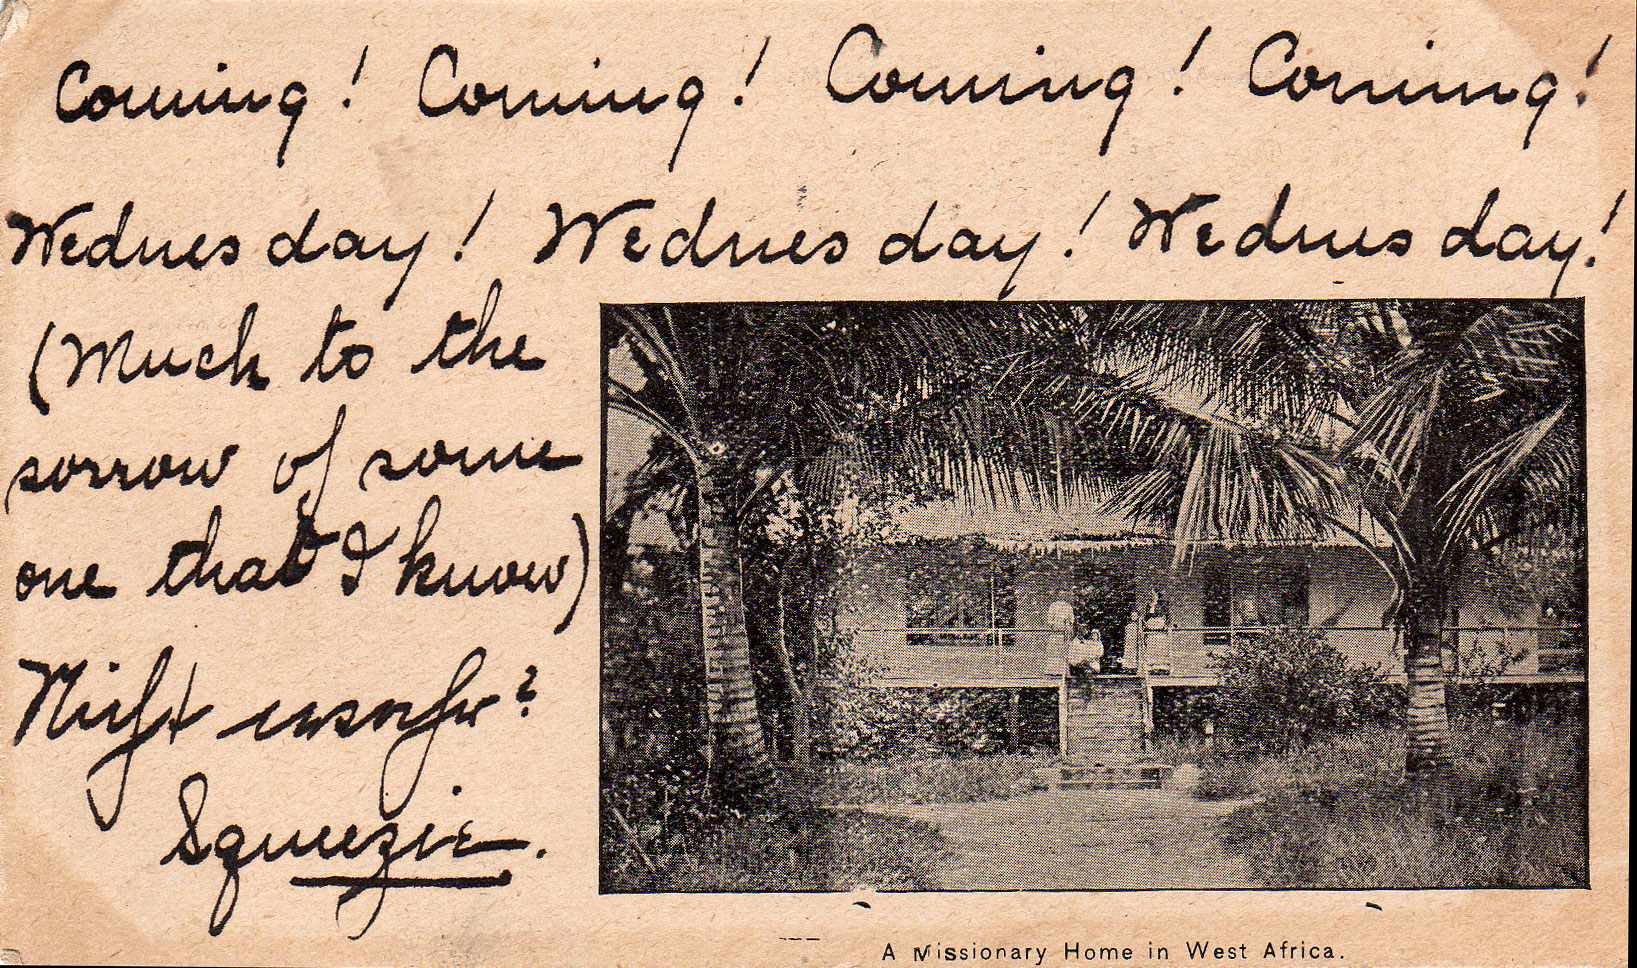 Coming! Coming! Coming! Coming!
Wednesday! Wednesday! Wednesday!
(Much to the
sorrow of some
one that I know)
Nicht ?
Squeezie.
A Missionary Home in West Africa.